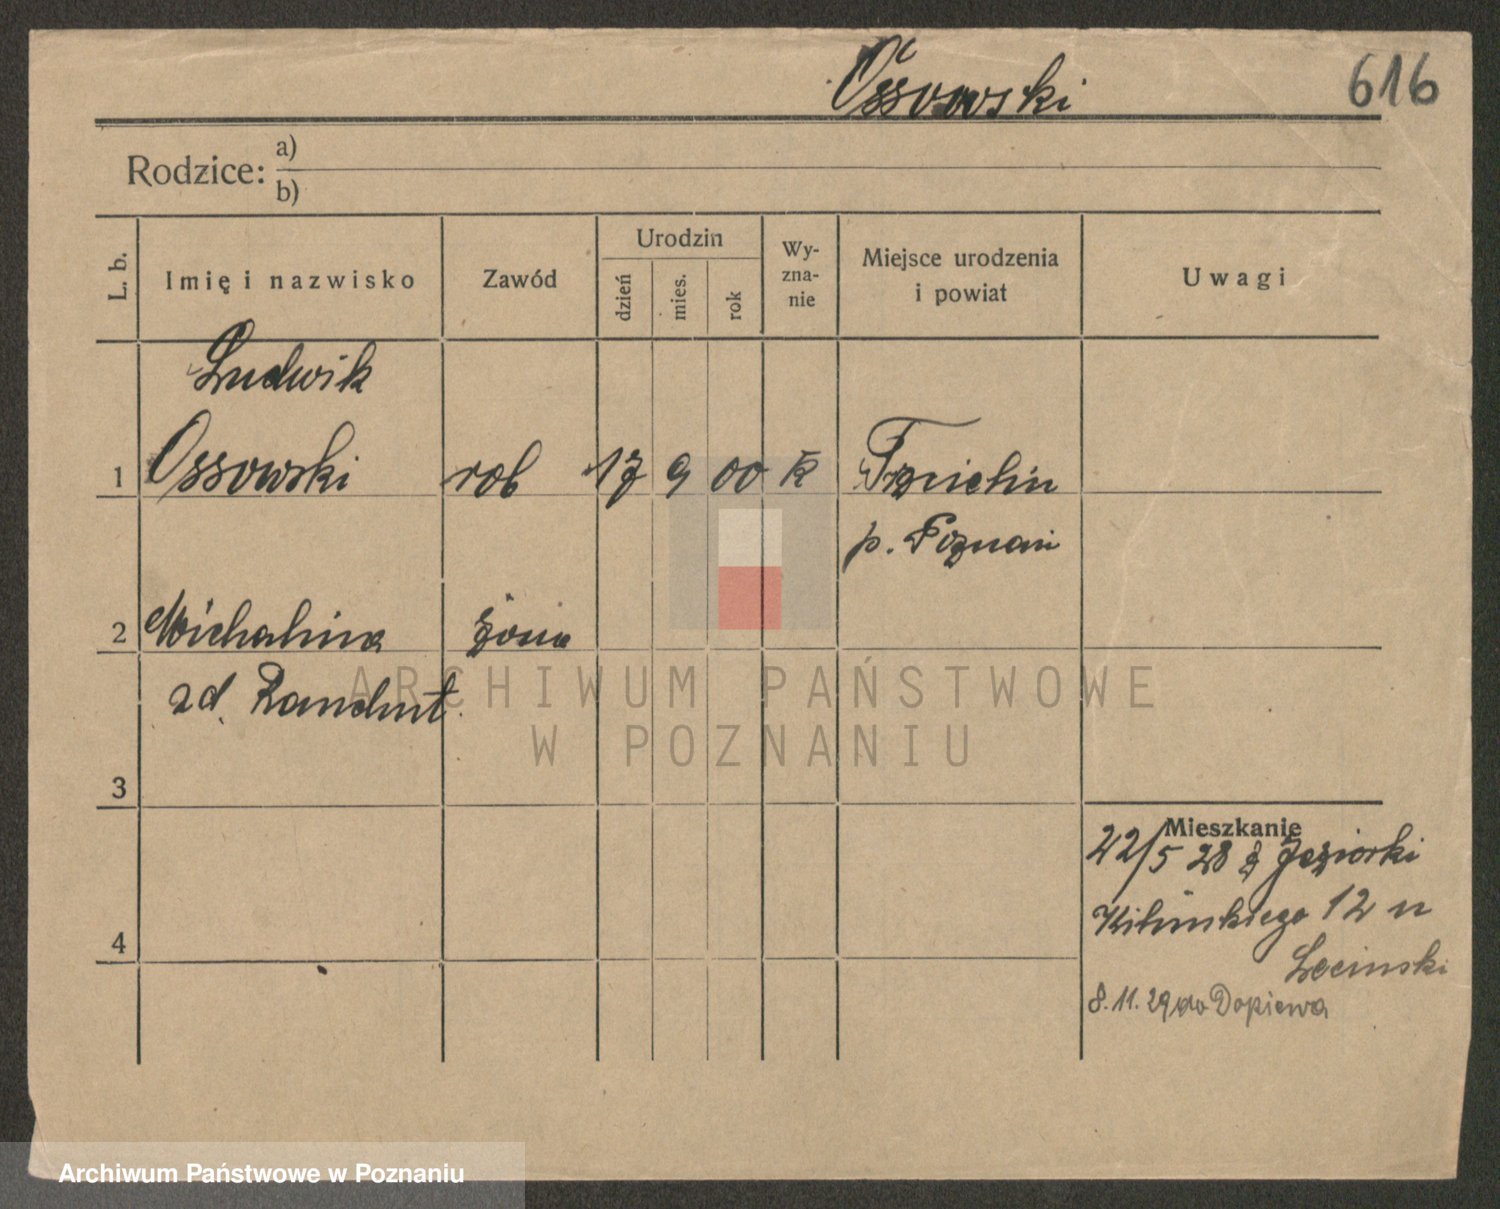 Ossowski
616
Rodzice: a)
b)
L. b.
Imię i nazwisko
Zawód
Urodzin
dzień
mies.
rok
Wy-
zna-
nie
Miejsce urodzenia
i powiat
Uwagi
Ludwik
1 Ossowski rob 17 9 00 k
p. Poznań
2 Michalina żona
zd.
3
4
Mieszkanie
22/5 28 z Jeziorki
12 u
8.11.29 do Dopiewa
ARCHIWUM PAŃSTWOWE
W POZNANIU
Archiwum Państwowe w Poznaniu